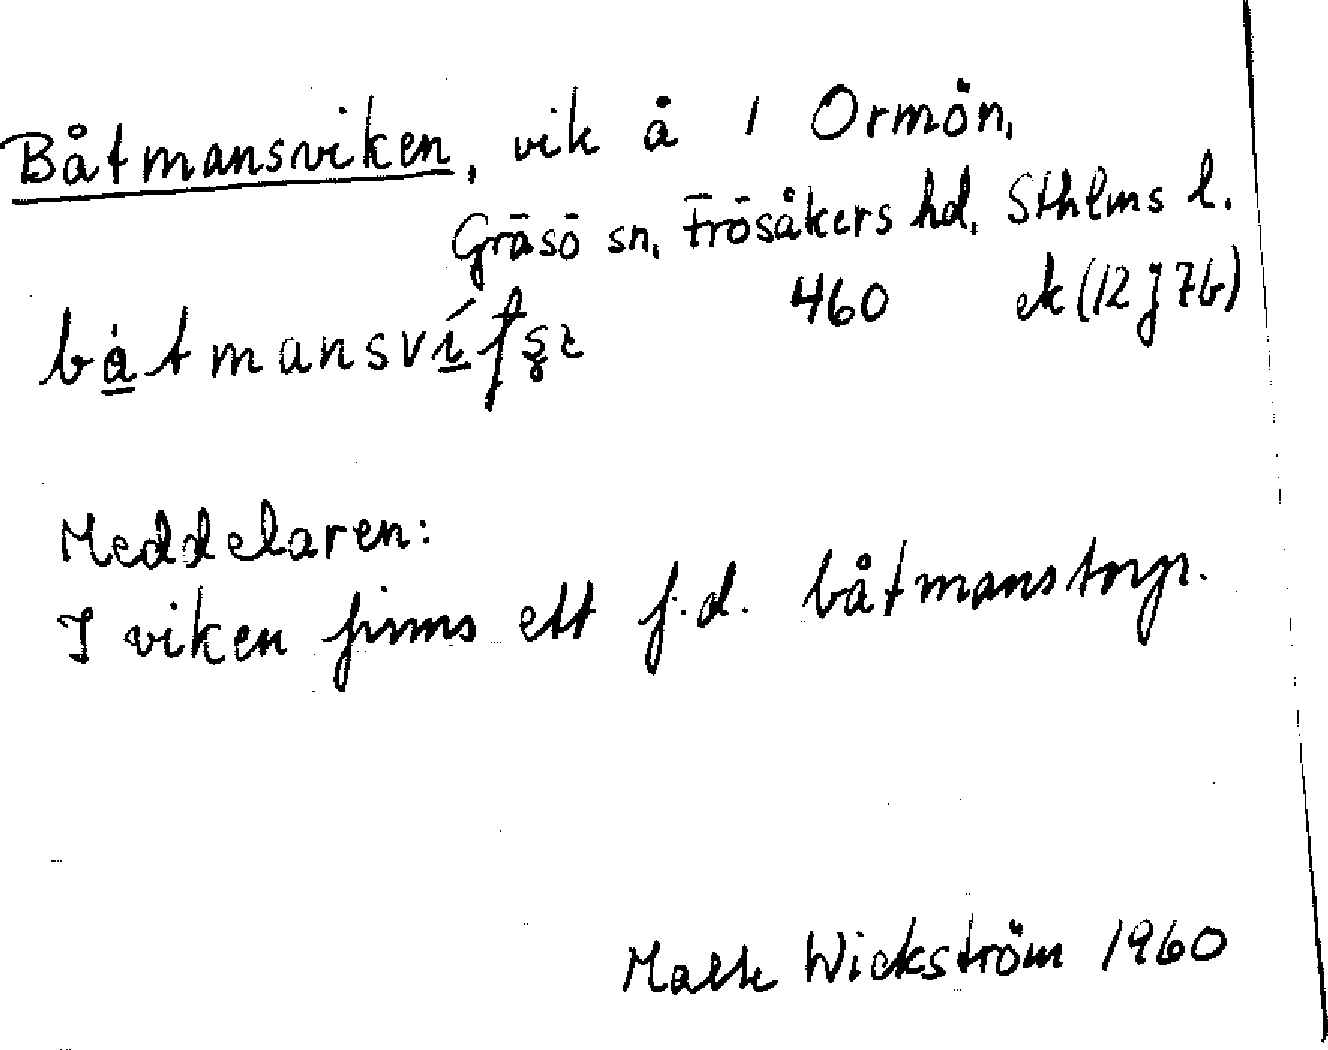 Båtmansviken, vik å 1 Ormön,
Gräsö sn, Frösåkers hd, Sthlms l.
460 ek (12 j 7b)
båtmansví
Meddelaren:
I viken finns ett f.d. båtmanstorp.
Wickström 1960